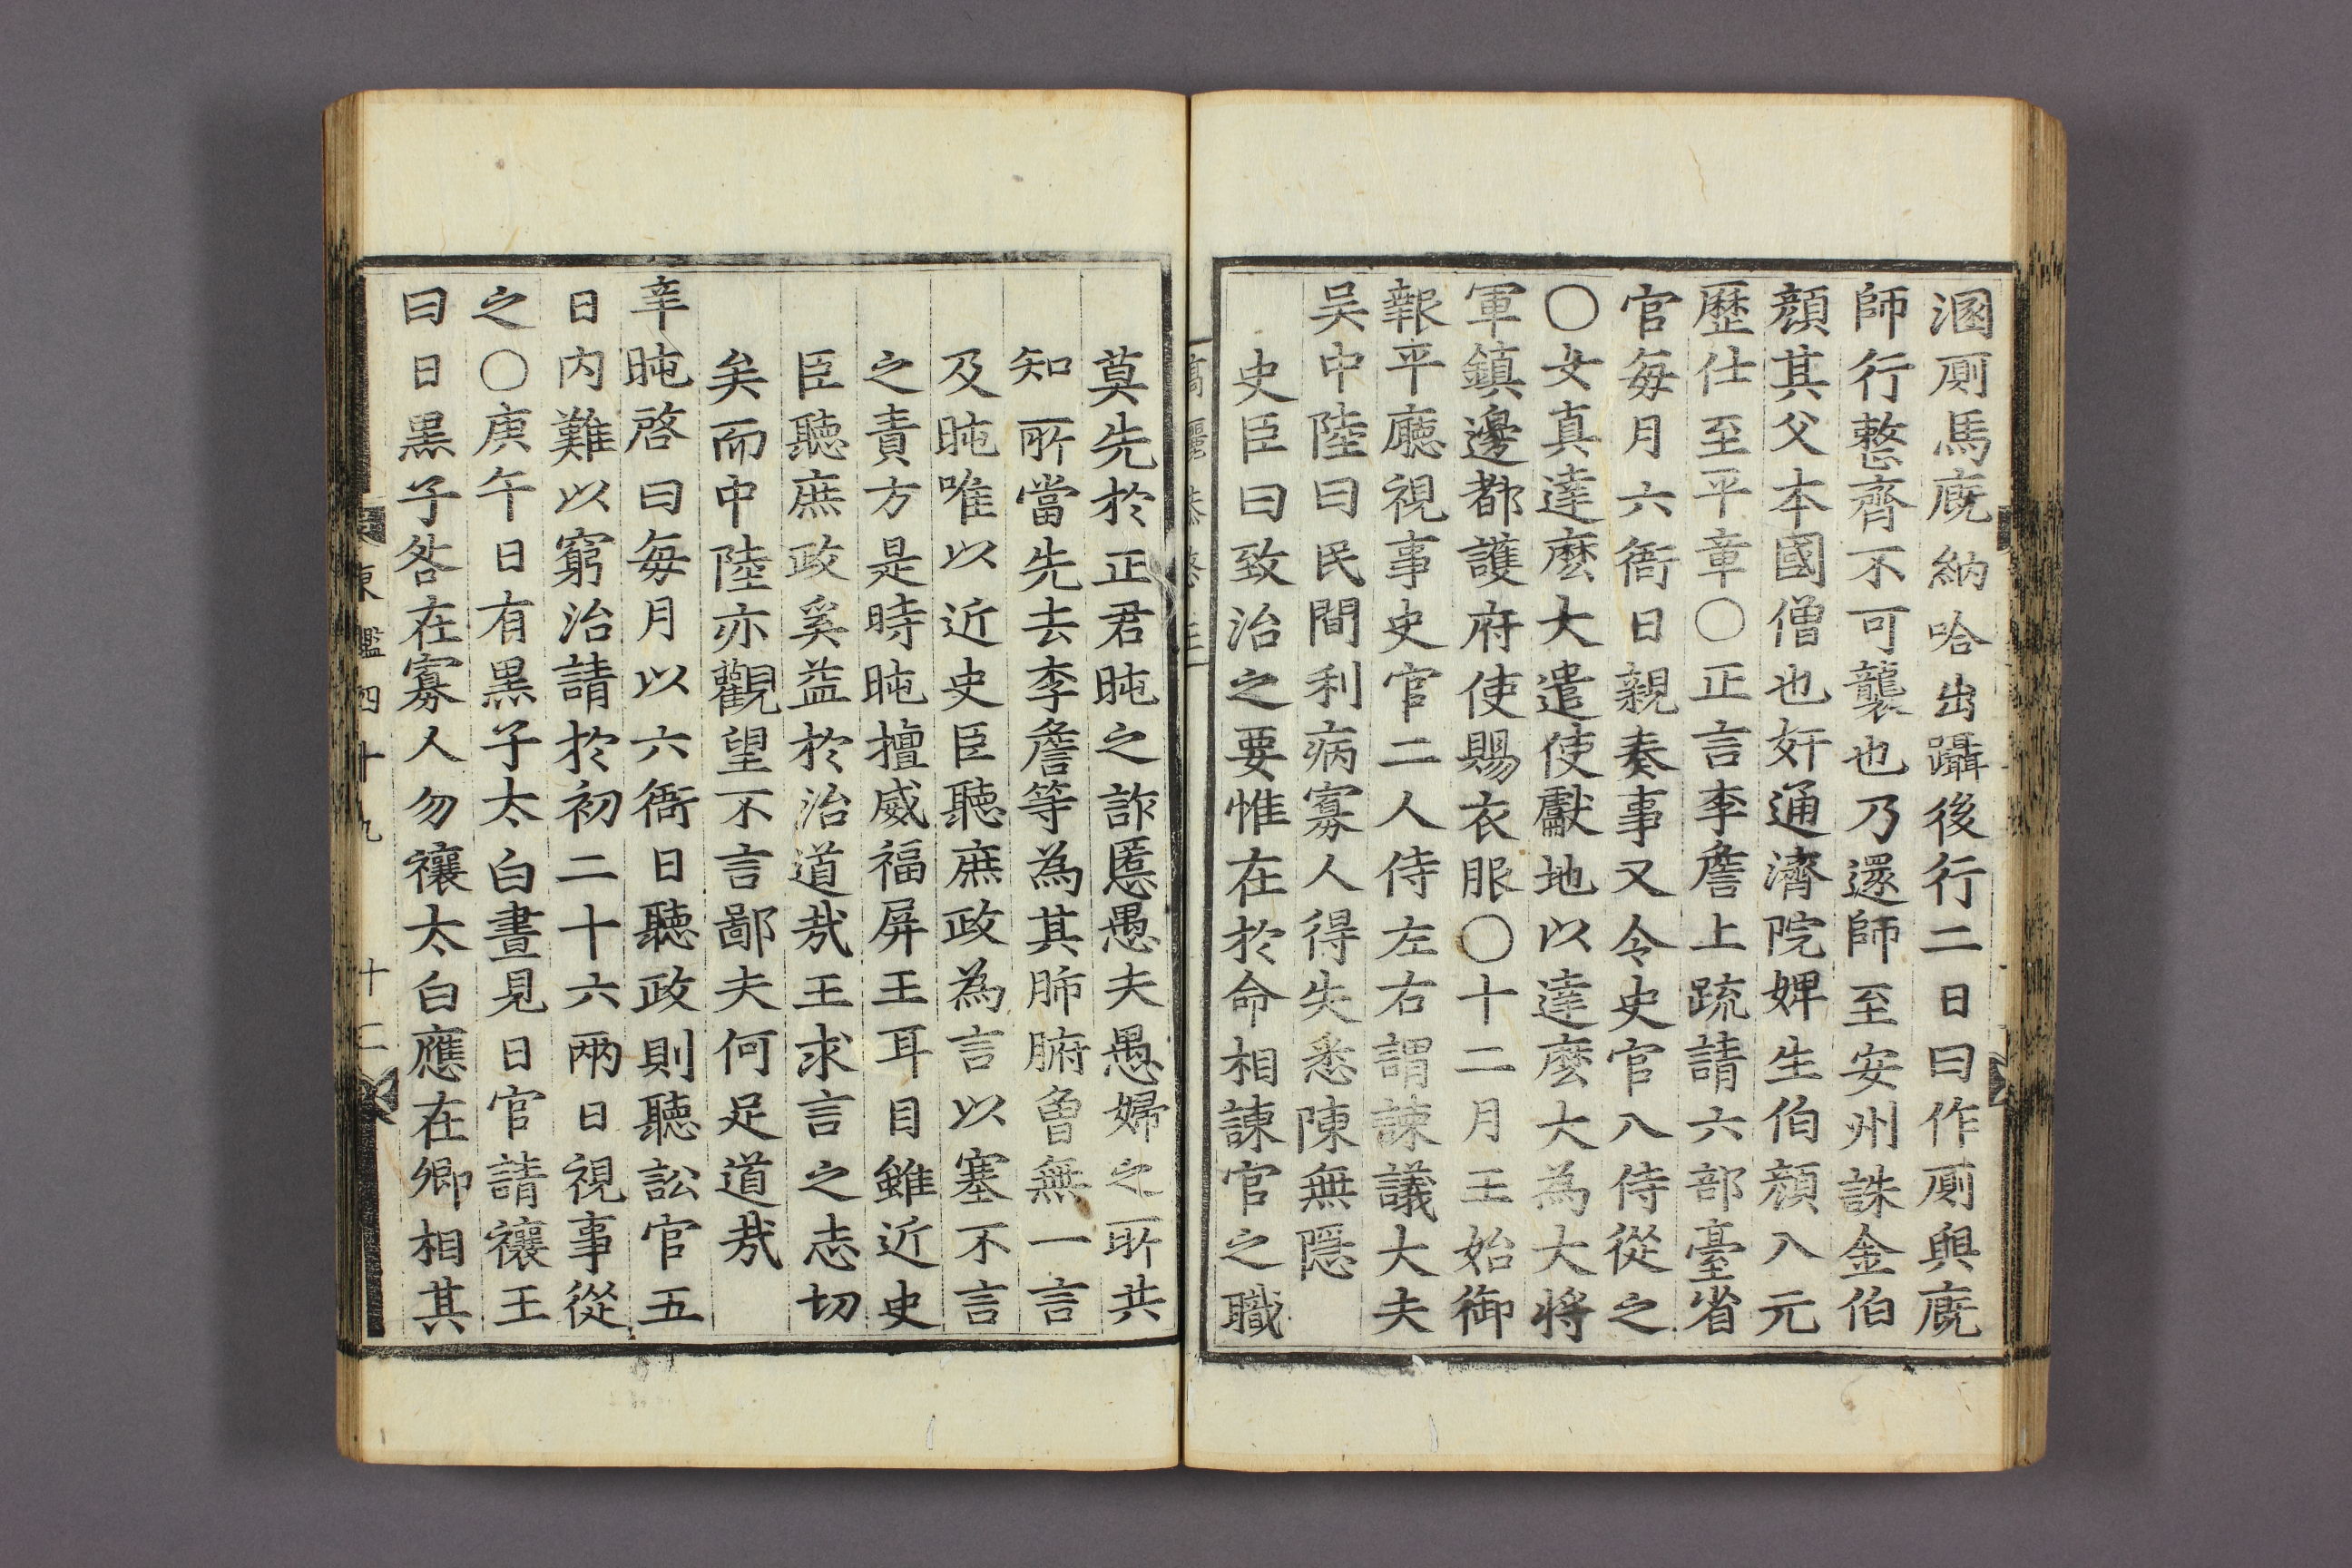 溷厠馬廐納哈出躡後行二日曰作厠與廐
師行整齊不可襲也乃還師至安州誅金伯
顔其父本國僧也奸通濟院婢生伯顔入元
歷仕至平章○正言李詹上疏請六部臺省
官每月六衙日親奏事又令史官八侍從之
○女真達麽大遣使獻地以達麽大為大將
軍鎮邊都護府使賜衣服○十二月王始御
報平廳視事史官二人侍左右謂諫議大夫
吴中陸曰民間利病寡人得失悉陳無隱
史臣曰致治之要惟在於命相諫官之職
莫先於正君旽之詐慝愚夫愚婦之所共
知所當先去李詹等為其肺腑曾無一言
及旽唯以近史臣聽庶政為言以塞不言
之責方是時旽擅威福屏王耳目雖近史
臣聽庶政奚益於治道㢤王求言之志切
矣而中陸亦觀望不言鄙夫何足道㢤
辛旽啓曰每月以六衙日聽政則聽訟官五
日内難以窮治請於初二十六兩日視事從
之○庚午日有黒子太白晝見日官請禳王
曰日黒子咎在寡人勿禳太白應在卿相其
東鑑四十九 十二